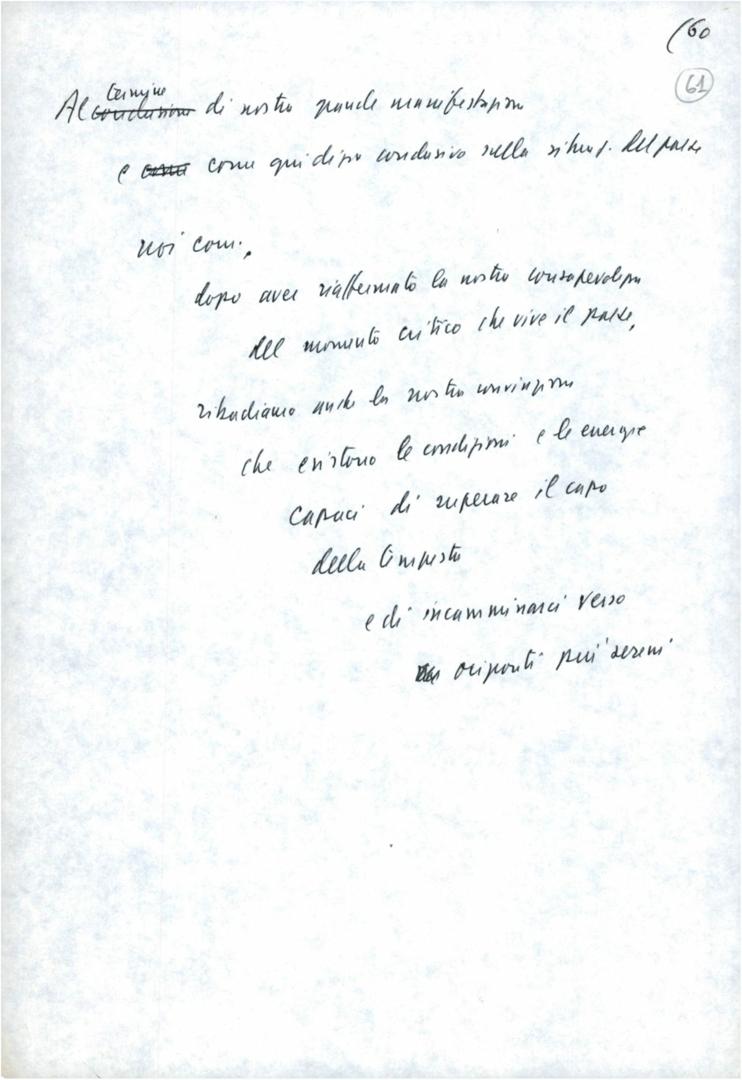 (60
61
termine
Al conclusione di nostra grande manifestazione
e come come giudizio conclusivo sulla situaz. del paese
noi com.,
dopo aver riaffermato la nostra consapevolezza
del momento critico che vive il paese,
ribadiamo anche la nostra convinzione
che esistono le condizioni e le energie
capaci di superare il capo
della tempesta
e di incamminarci verso
orizzonti più sereni